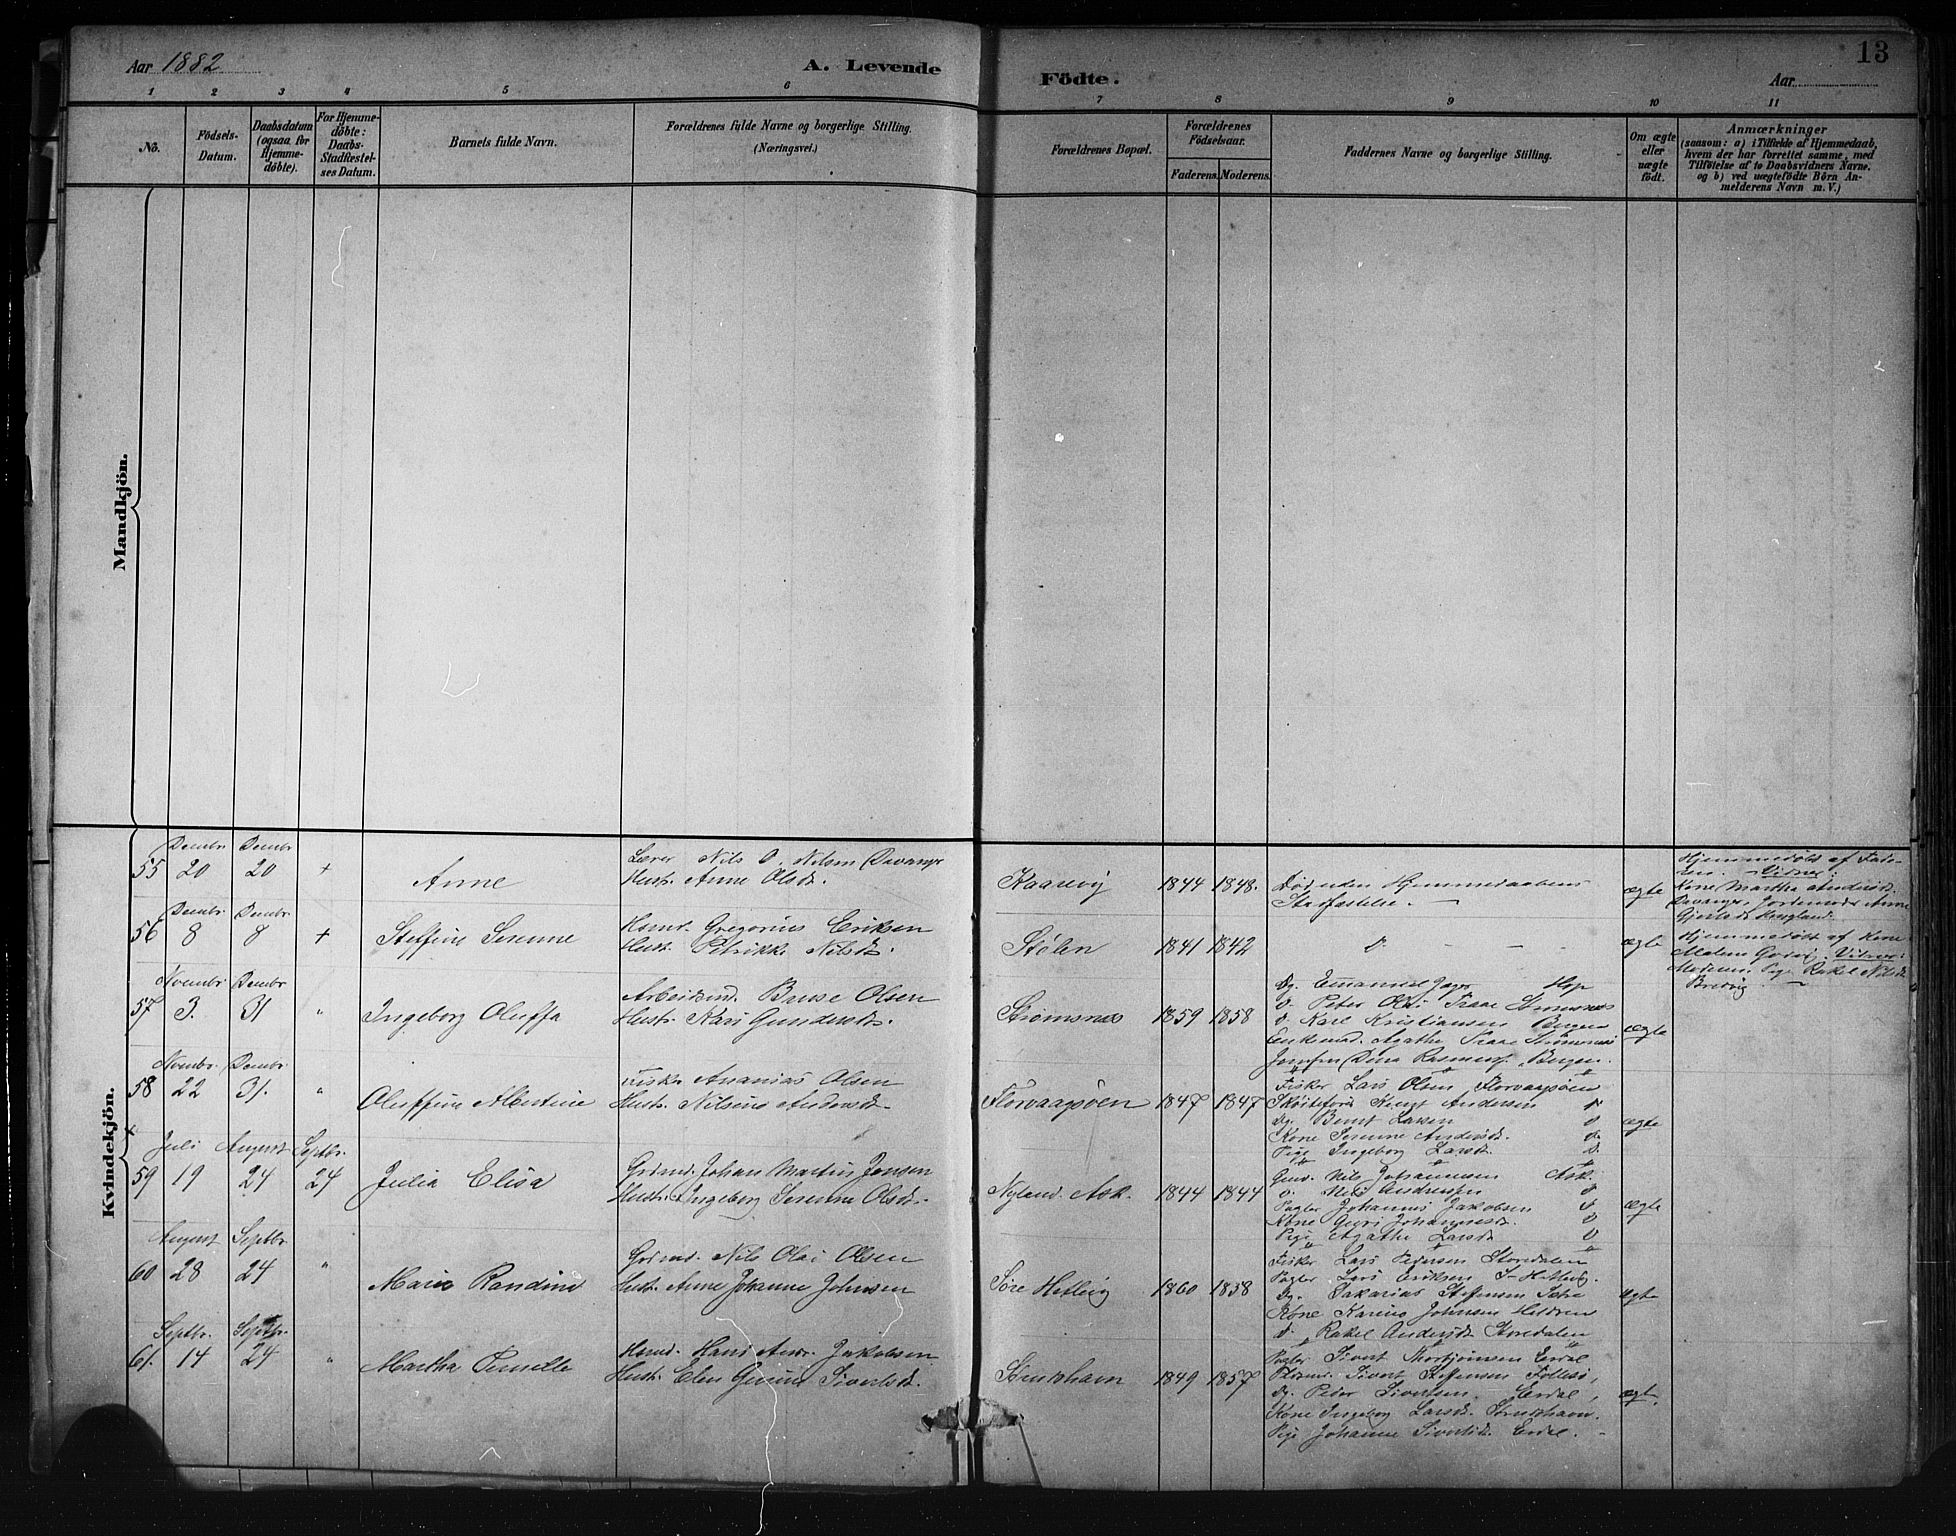 13
Aar 1882
A. Levende
Födte.
Aar
1 2 3 4 5 6 7 8 9 10 11
No.
Födsels-
Datum.
Daabsdatum
(ogsaa for
Hjemme-
döbte).
For Hjemme-
döbte:
Daabs-
Stadfæstel-
ses Datum.
Barnets fulde Navn.
Forældrenes fulde Navne og borgerlige Stilling.
(Næringsvei.)
Forældrenes Bopæl.
Forældrenes
Födselsaar.
Faderens. Moderens.
Faddernes Navne og borgerlige Stilling.
Om ægte
eller
uægte
födt.
Anmærkninger
(saasom: a) i Tilfælde af Hjemmedaab,
hvem der har forrettet samme, med
Tilföielse af to Daabsvidners Navne.
og b) ved uægtefödte Börn An-
melderens Navn m. V.)
Mandkjön.
Kvindekjön.
55
Decmbr
20
Decmbr
20
+
Anne
Lærer Nils O. Nilsen Davanger
Hustr. Anne Olsdt.
Kaarevig
1844
1848.
Död uden Hjemmedaabens
Stadfæstelse.
ægte
Hjemmedöbt af Fade-
ren. Vidner:
Kone Martha Andersdt.
Davanger, Jordemoder Anne
56
Decmbr
8
Decmbr
8
+
Steffine Serenne
Husmd. Gregorius Eriksen
Hust. Petrikke Nilsdt.
Stölen
1841
1842
ægte
Hjemmedöbt af Kone
Vidner:
Moderen. Pige Rakel Nilsdt.
Bredvig
57
Novmbr
3.
Decmbr
31
"
Ingeborg Oluffa
Arbeidsmd. Olsen
Hustr. Kari Gundersdt.
Strömsnes
1859
1858
Emanuel Hop
Peter Olai Strömsnes
Karl Kristiansen Bergen
Enkemd. Agathe Strömsnes
Jomfru Dina Bergen.
ægte
58
Novmbr.
22
Decmbr
31.
"
Oluffine Albertine
Fisker Ananias Olsen
Hustr. Nilsine Andersdt.
Florvaagöen
1847
1847
Fisker Lars Olsen Florvaagöen
Knut Andersen
Bernt Larsen
Kone Serenne Andersdt.
Pige Ingeborg Larsdt.
ægte
59
Juli
19
August
24
Septbr.
24
Julia Elisa
Grdmd. Johan Martin Jansen
Hustr. Ingeborg Serenne Olsdt.
Nyland Ask.
1844
1844
Grmd. Nils Johannessen Ask.
Andersen
Johannes Jakobsen
Kone Guri Johannesdt.
Pige Agathe Larsdt.
ægte
60
August
28
Septbr
24
"
Marie Randine
Grdmd. Nils Olai Olsen
Hustr. Anne Johanne Johnsen
Söre Hetlevig
1860
1838
Fisker Lars Pedersen Storedalen
Lars Eriksen S. Hetlevig.
Sakarias Steffensen
Kone Karine Johnsen
Rakel Andersdt. Storedalen
ægte
61.
Septbr.
14
Septbr.
24
"
Martha Pernille
Husmd. Hans Andr. Jakobsen
Hustr. Elen Sivertsdt.
Strudshavn
1849
1857
Sivert Erdal
Sivert Steffensen Follesö,
Peder Sivertsen. Erdal,
Kone Ingeborg Larsdt. Strudshavn.
Pige Johanne Sivertsdt. Erdal.
ægte.